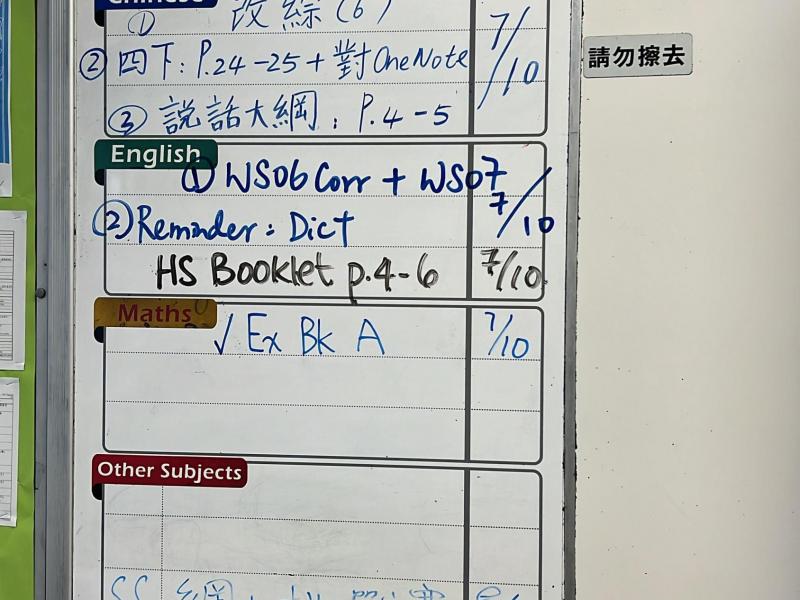 Chinese
① 改綜(6)
② 四下: P.24-25 + 對OneNote 7/10
③ 説話大綱: P.4-5
請勿擦去
English
① WS06 Corr + WS07
② Reminder: Dict 7/10
HS Booklet p.4-6 7/10
Maths
√ Ex Bk A 7/10
Other Subjects